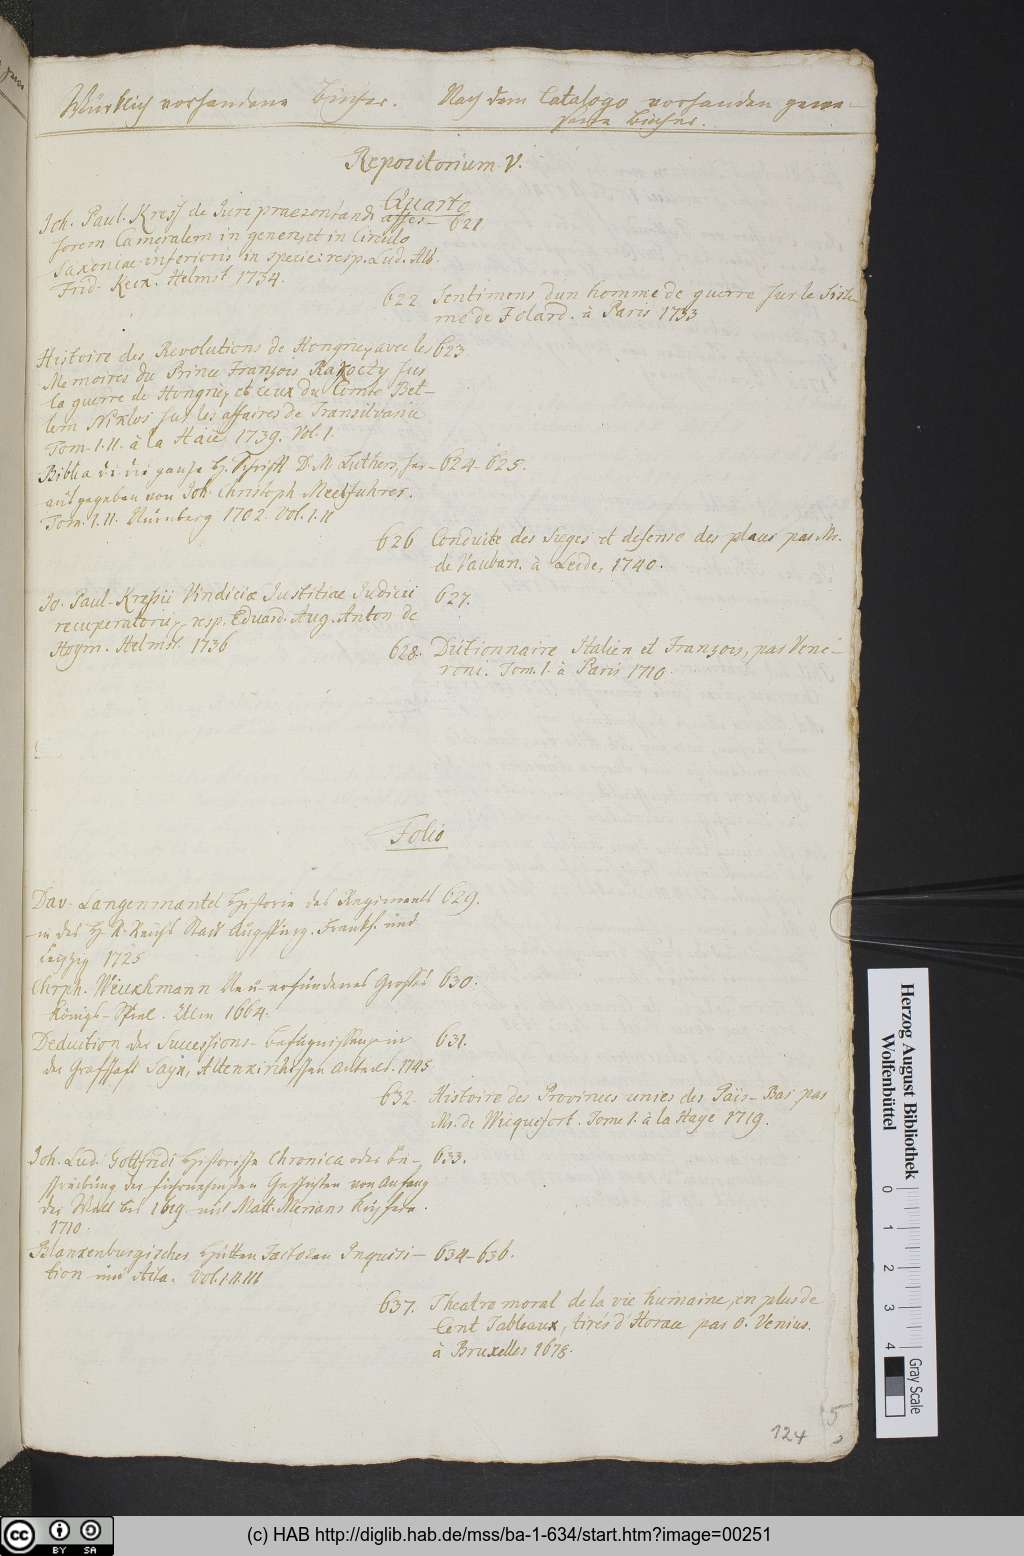 Würklich vorhandene Bücher.
Nach dem Catalogo vorhanden gewe-
sene Bücher.
Repositorium V.
Quarto
Joh. Paul. Kress de Iure praesentandi asses- 621
sorem Cameralem in genere, et in Circulo
Saxoniae inferioris in specie: resp. Lud. Alb.
Frid. Keck. Helmst 1734.
622 Sentimens dun homme de guerre sur le Siste-
me de Folard. à Paris 1733
Histoire des Revolutions de Hongrie, avec les 623
Memoires du Prince François Rakoczy sur
la guerre de Hongrie, et ceux du Comte Bet-
lem Niklos sur les affaires de Transilvanie
Tom. I. II. à la Haie 1739. Vol. 1.
Biblia d. i. die ganze H. Schrifft D. M. Luthers, her- 624-625.
ausgegeben von Joh. Christoph Meelfuhrer.
Tom. I. II. Nürnberg 1702. Vol. I. II
626 Conduite des Sieges et defense des places par Mr.
de Vauban. à Leide, 1740.
Jo. Paul. Kressii Vindiciae Iustitiae Iudicii 627.
recuperatorii, resp. Eduard. Aug. Anton de
Hoym. Helmst. 1736
628. Dictionnaire Italien et François, par Vene-
roni. Tom. I. à Paris 1710.
Folio
Dav. Langenmantel Historie des Regiments 629.
in des H. R. Reichs Stadt Augspurg. Franckf. und
Leipzig 1725
Chrph. Weickhmann Neu-erfundenes Grosses 630.
Königs-Spiel. Ulm 1664.
Deduction der Successions-Befugnissen in 631.
der Grafschaft Sayn, Altenkirchischen Antheils. 1745
632. Histoire des Provinces unies des Païs-Bas par
Mr. de Wicquefort. Tome I. à la Haye 1719.
Joh. Lud. Gottfridi Historische Chronica oder Be- 633.
schreibung der fürnehmsten Geschichten von Anfang
der Welt bis 1619. mit Matt. Merians Kupfern.
1710.
Blankenburgisches Hütten Factorey Inquisi- 634-636.
tion und Acta. Vol. I. II. III
637. Theatre moral de la vie humaine, en plus de
Cent Tableaux, tirés d'Horace par O. Venius.
à Bruxelles 1678.
124
Herzog August Bibliothek
Wolfenbüttel
0 1 2 3 4
Gray Scale
(c) HAB http://diglib.hab.de/mss/ba-1-634/start.htm?image=00251
cc BY SA